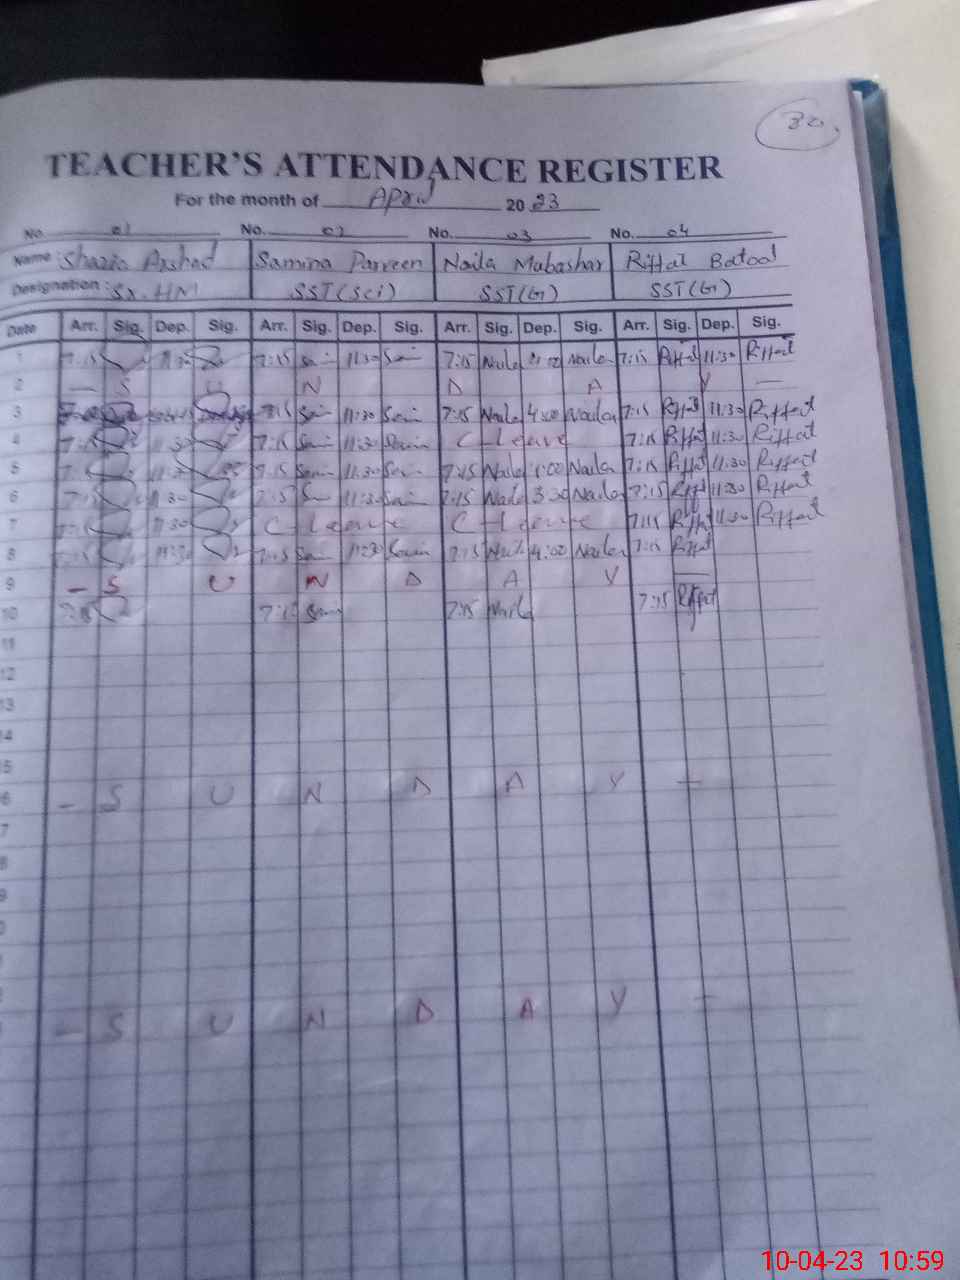 30
TEACHER'S ATTENDANCE REGISTER
For the month of April 2023
No. 01 No. 02 No. 03 No. 04
Name : Shazia Arshad Samina Parveen Naila Mubashar Riffat Batool
Designation : Sr. HM SST(Sci) SST(G) SST(G)
Date Arr. Sig. Dep. Sig. Arr. Sig. Dep. Sig. Arr. Sig. Dep. Sig. Arr. Sig. Dep. Sig.
1 7:15 11:30 7:15 Sam 11:30 Sam 7:15 Naila Naila 7:15 Riffat 11:30 Riffat
2 — S U N D A Y —
3 7:15 Sam 11:30 Sam 7:15 Naila 4:00 Naila 7:15 Riffat 11:30 Riffat
4 7:15 11:30 7:15 Sam 11:30 Sam C-Leave 7:15 Riffat 11:30 Riffat
5 7:15 11:30 7:15 Sam 11:30 Sam 7:15 Naila 4:00 Naila 7:15 Riffat 11:30 Riffat
6 7:15 11:30 7:15 Sam 11:30 Sam 7:15 Naila 3:30 Naila 7:15 Riffat 11:30 Riffat
7 7:15 11:30 C-Leave C-Leave 7:15 Riffat 11:30 Riffat
8 7:15 11:30 7:15 Sam 11:30 Sam 7:15 Naila 4:00 Naila 7:15 Riffat
9 — S U N D A Y —
10 7:15 7:15 Sam 7:15 Naila 7:15 Riffat
11
12
13
4
5
6 — S U N D A Y —
7
8
9
0
— S U N D A Y —
10-04-23 10:59